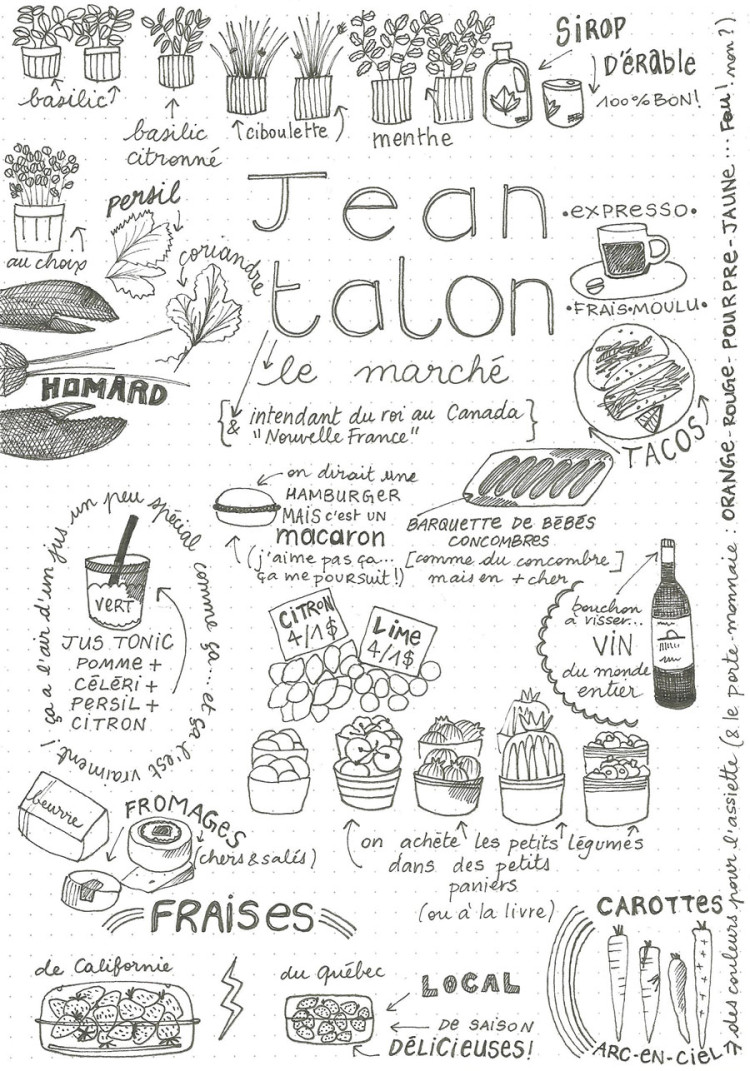 basilic
basilic
citronné
ciboulette
menthe
SIROP
D'ÉRABLE
100% BON!
au choix
persil
coriandre
HOMARD
Jean
talon
le marché
{& intendant du roi au Canada}
"Nouvelle France"
•EXPRESSO•
•FRAIS•MOULU•
TACOS
on dirait une
HAMBURGER
MAIS c'est UN
macaron
(j'aime pas ça...
ça me poursuit!)
BARQUETTE DE BÉBÉS
CONCOMBRES
[comme du concombre]
mais en + cher
ça a l'air d'un jus un peu spécial comme ça... et ça l'est vraiment!
VERT
JUS TONIC
POMME +
CÉLÉRI +
PERSIL +
CITRON
CITRON
4/1$
LIME
4/1$
bouchon
à visser...
VIN
du monde
entier
beurre
FROMAGES
(chers & salés)
on achète les petits légumes
dans des petits
paniers
(ou à la livre)
FRAISES
de Californie
du Québec
LOCAL
DE SAISON
DÉLICIEUSES!
CAROTTES
ARC-EN-CIEL
des couleurs pour l'assiette (& le porte-monnaie: ORANGE-ROUGE-POURPRE-JAUNE... Fou! non?)